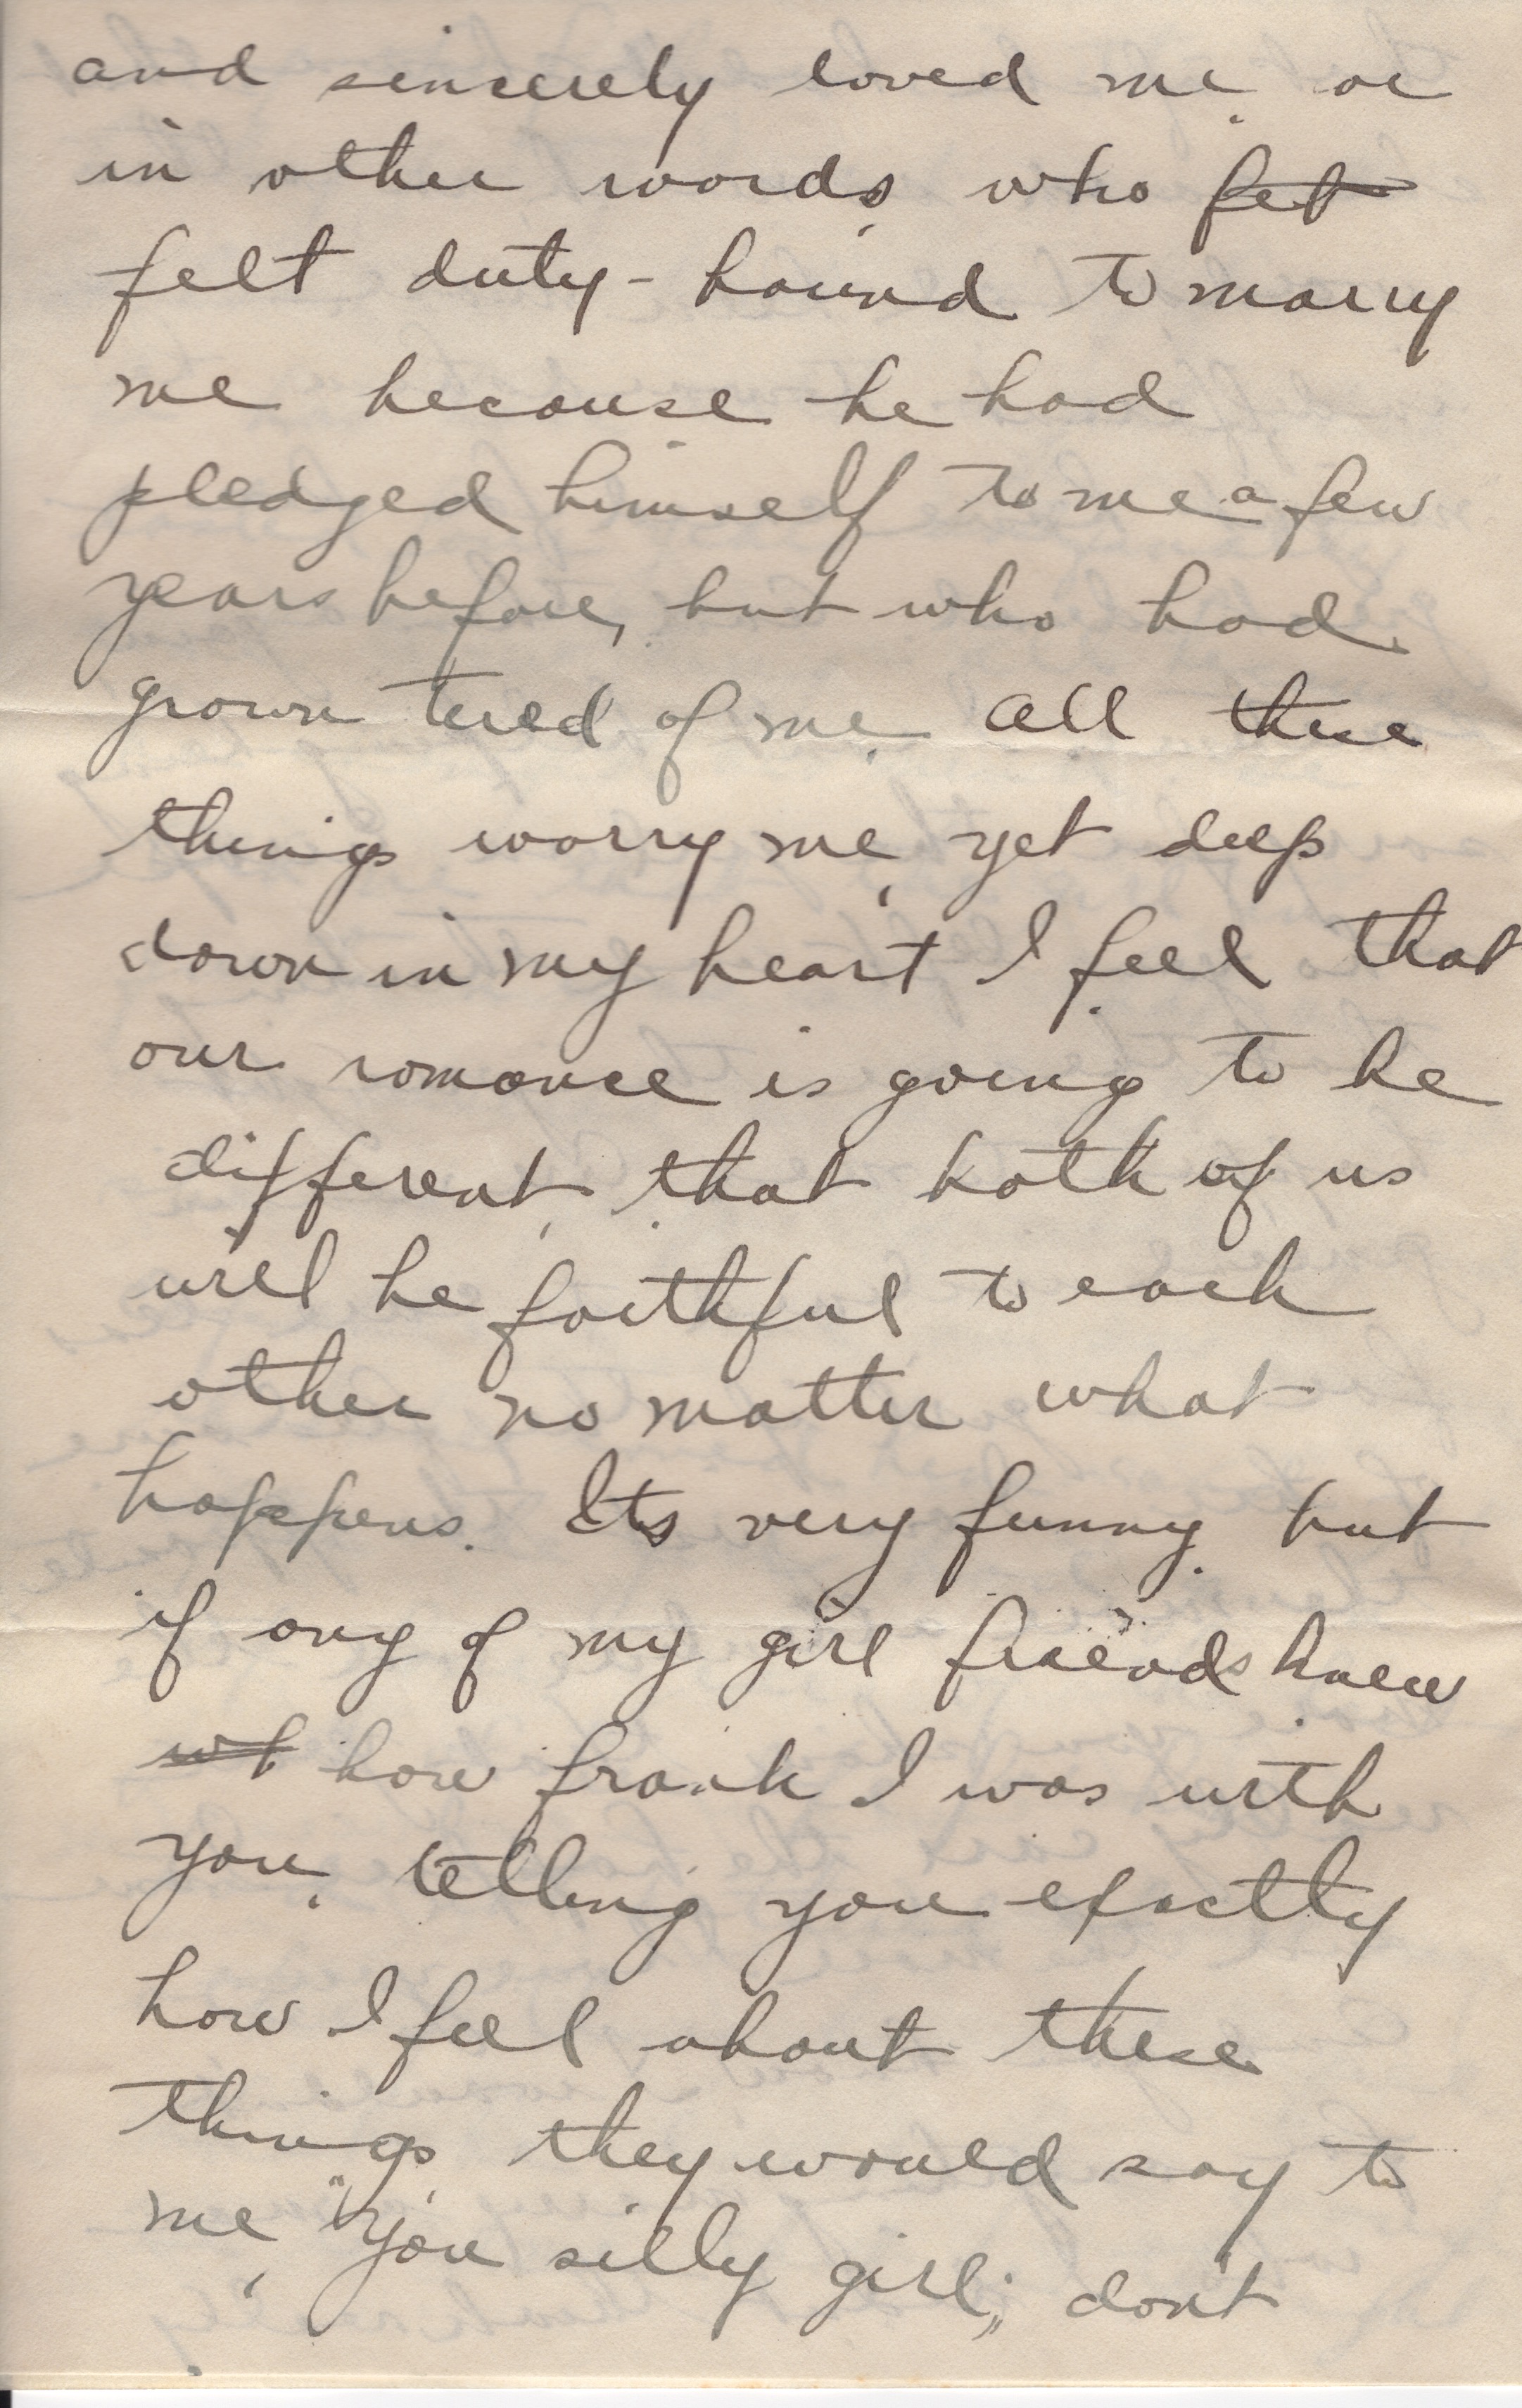 and sincerely loved me, or
in other words, who fet
felt duty-bound to marry
me because he had
pledged himself to me a few
years before, but who had
grown tired of me. All these
things worry me, yet deep
down in my heart I feel that
our romance is going to be
different, that both of us
will be faithful to each
other no matter what
happens. Its very funny, but
if any of my girl friends knew
wh how frank I was with
you, telling you exactly
how I feel about these
things, they would say to
me, "you silly girl," don't